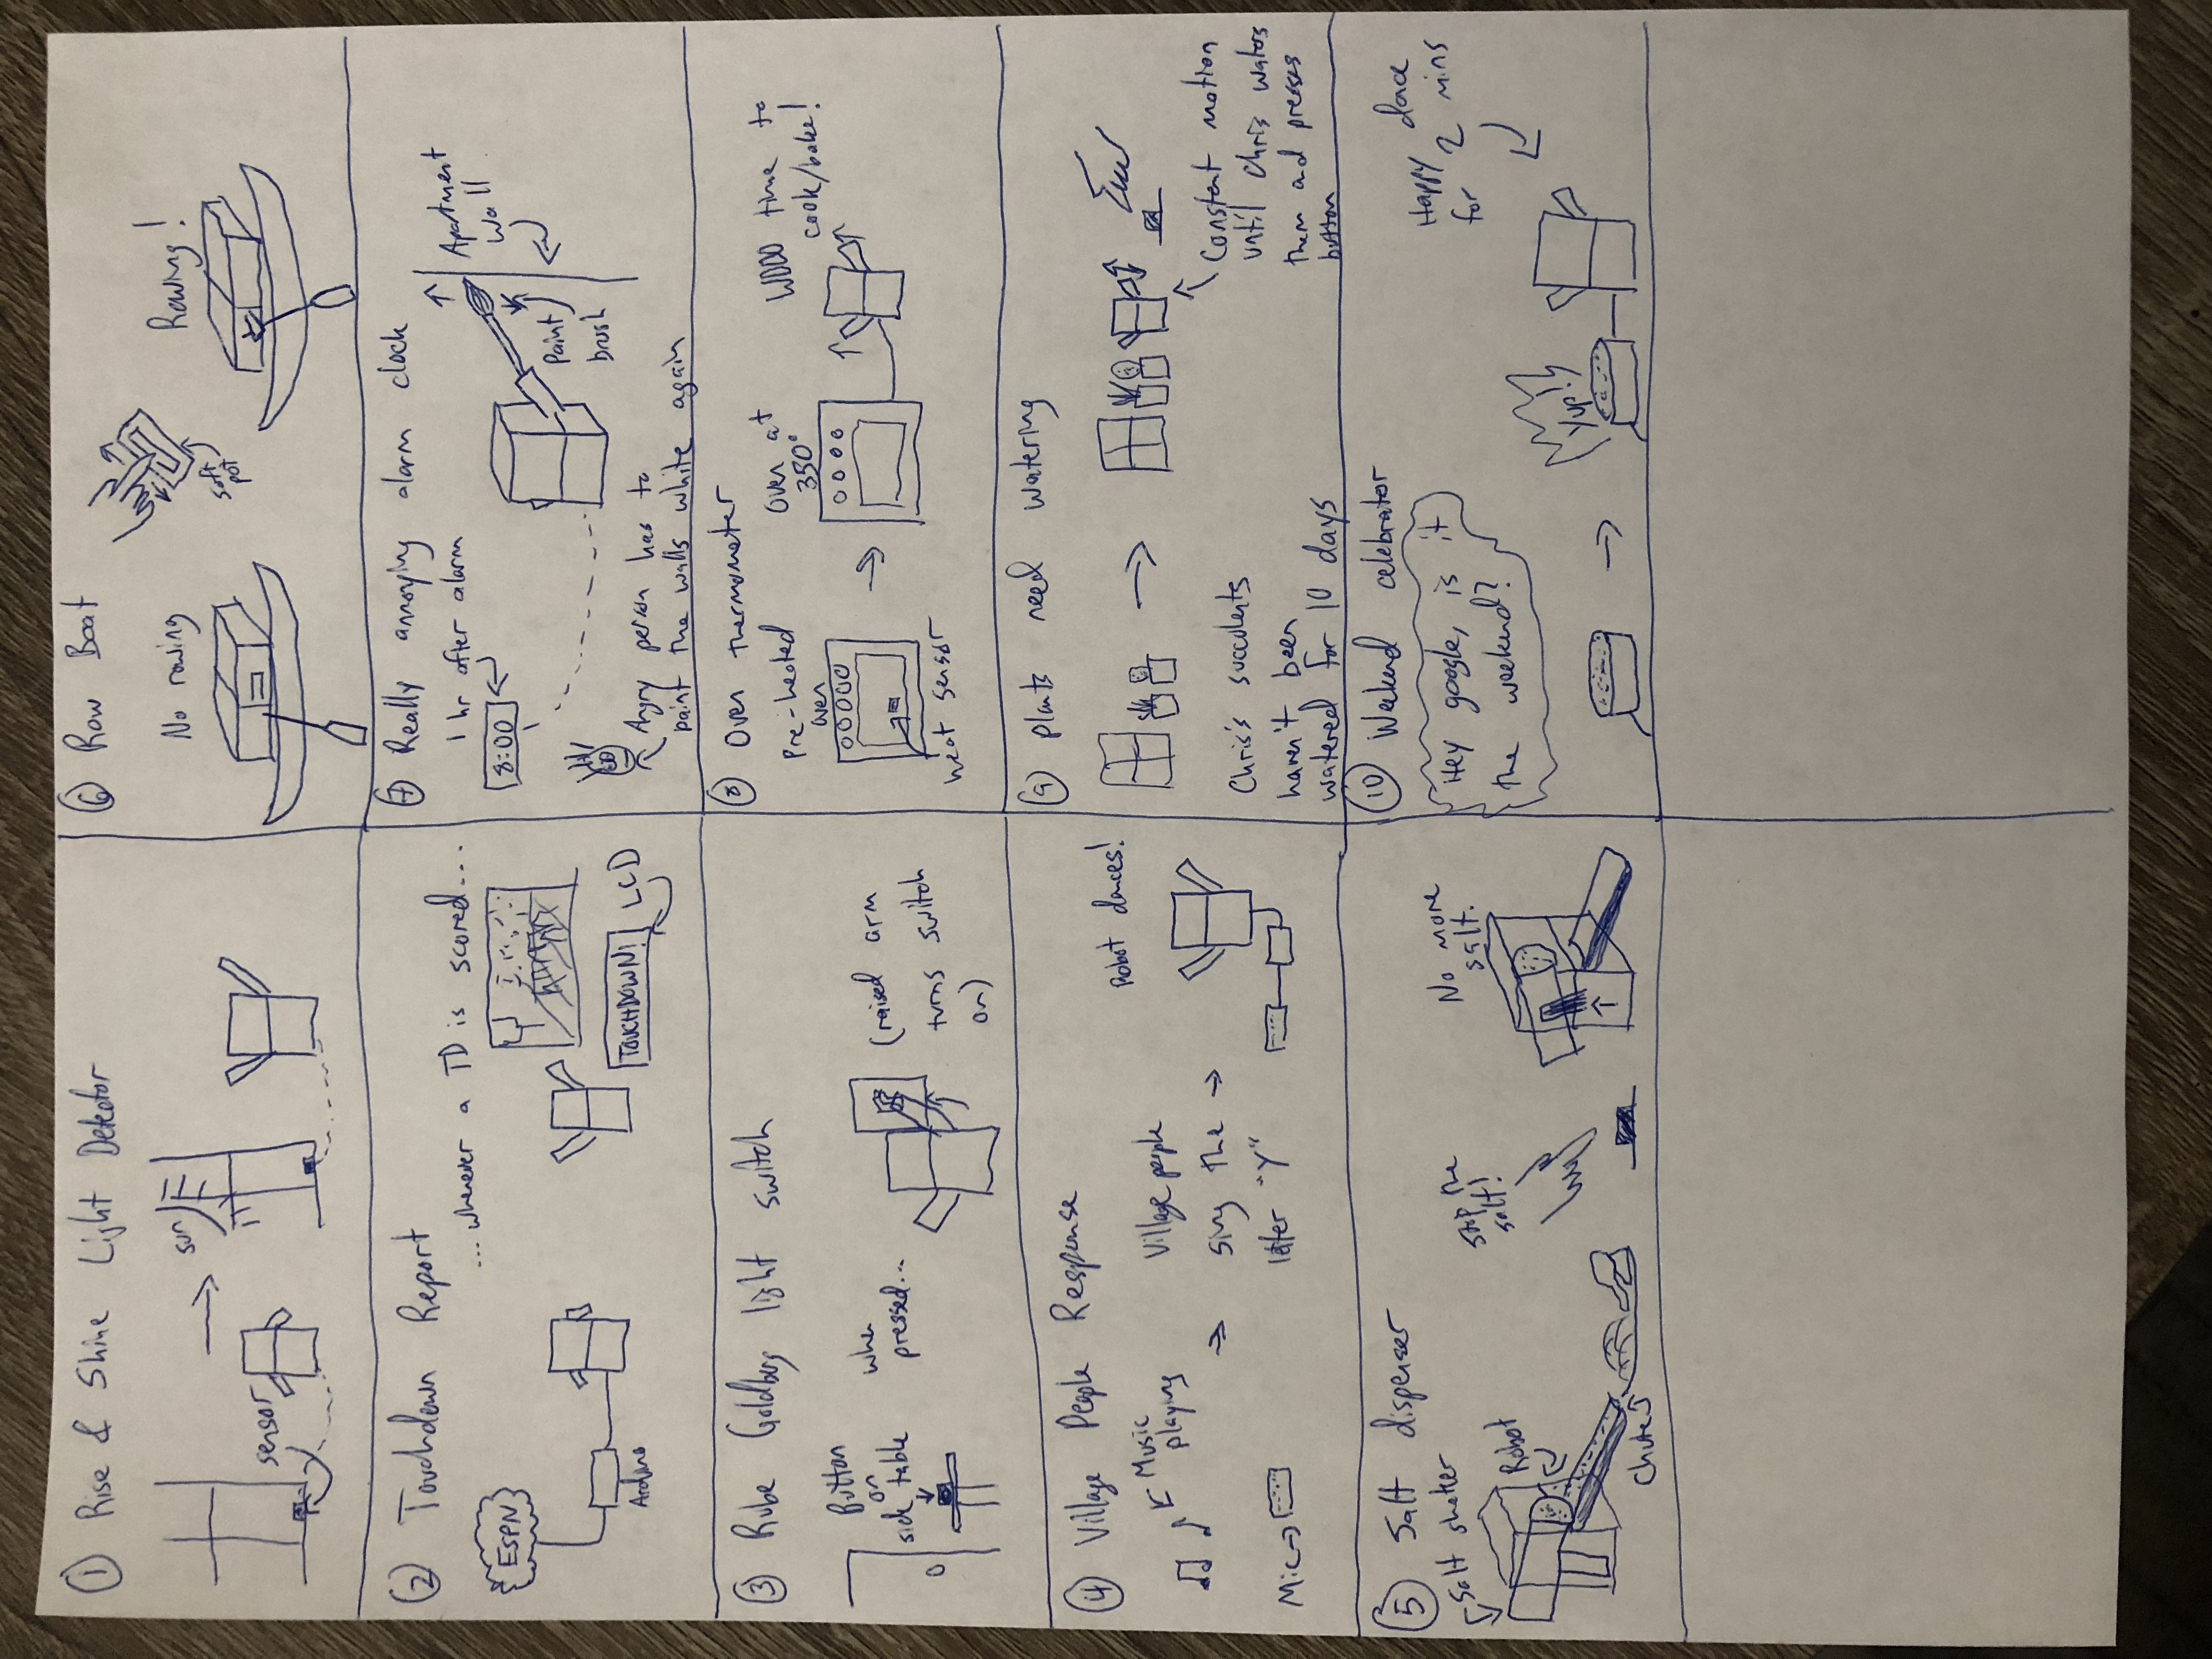 ① Rise & Shine Light Detector
sun
sensor
② Touchdown Report
... whenever a TD is scored...
ESPN
Arduino
TOUCHDOWN!
LCD
③ Rube Goldberg light switch
Button
on
side table
when
pressed...
(raised arm
turns switch
on)
④ Village People Response
Music
playing
Mic
Village people
sing the
letter "Y"
Robot dances!
⑤ Salt dispenser
Salt shaker
Robot
Chute
Stop the
salt!
No more
salt.
⑥ Row Boat
No rowing
soft
pot
Rowing!
⑦ Really annoying alarm clock
1 hr after alarm
8:00
Apartment
wall
Paint
brush
Angry person has to
paint the walls white again
⑧ Oven thermometer
Pre-heated
oven
heat sensor
Oven at
350°
WOOO time to
cook/bake!
⑨ Plants need watering
Chris's succulents
haven't been
watered for 10 days
Constant motion
until Chris waters
them and presses
button
⑩ Weekend celebrator
Hey google, is it
the weekend?
Yup!
Happy dance
for 2 mins